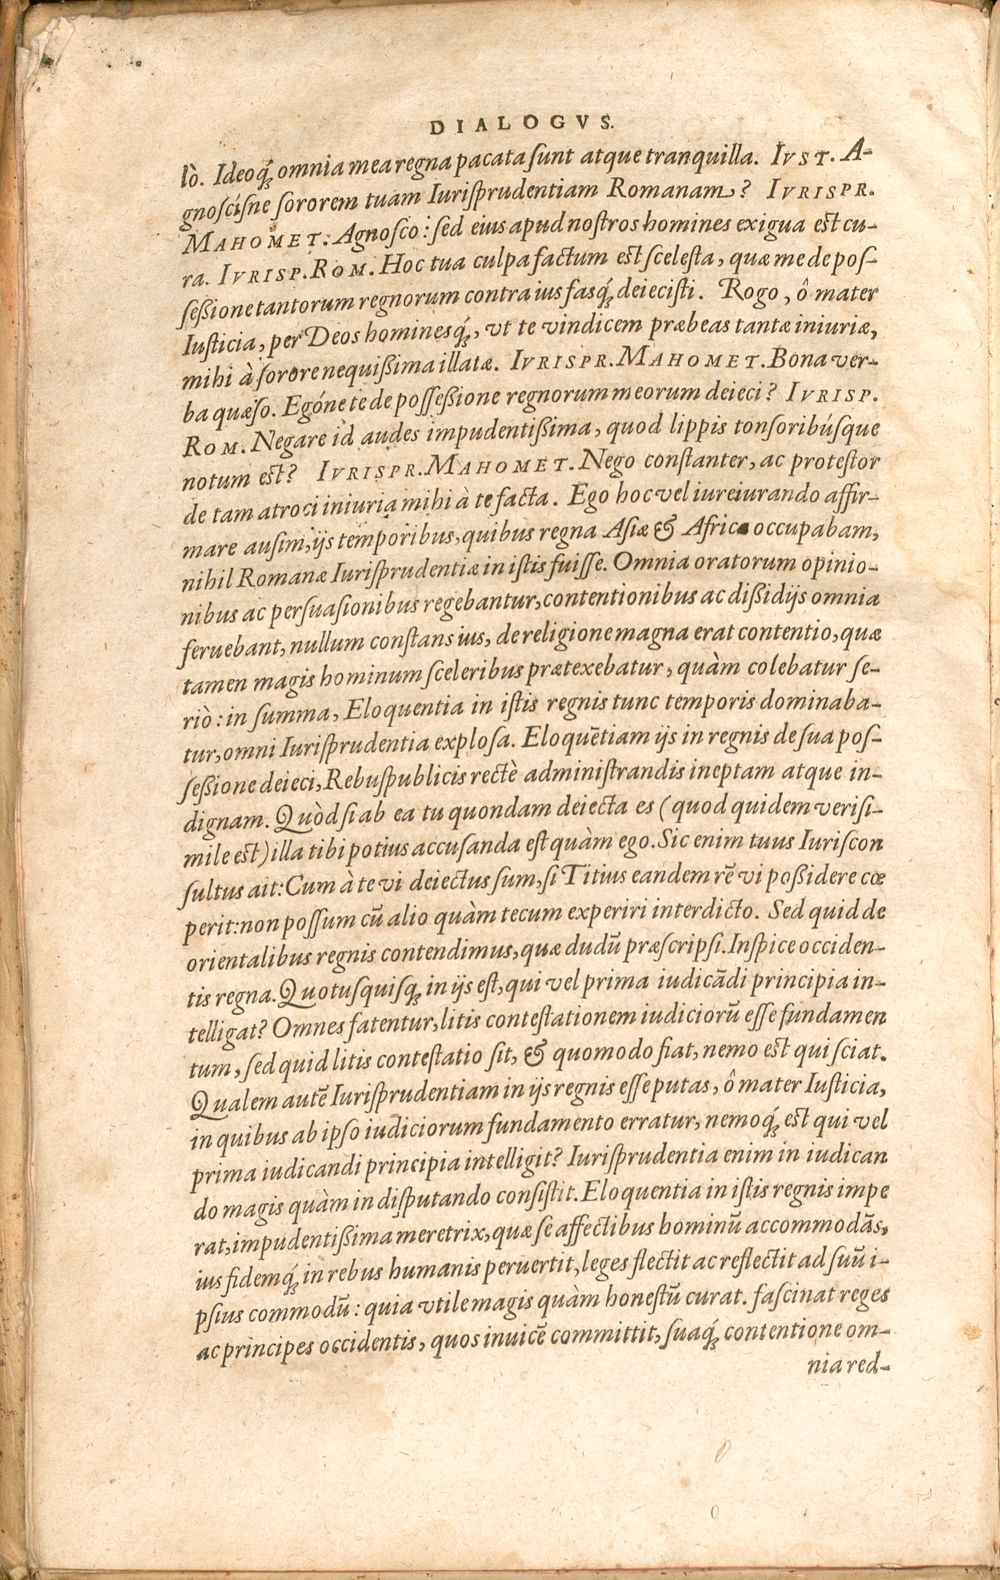 DIALOGVS.
lò. Ideoq́; omnia mea regna pacata sunt atque tranquilla. IVST. A-
gnoscísne sororem tuam Iurisprudentiam Romanam? IVRISPR.
MAHOMET. Agnosco: sed eius apud nostros homines exigua est cu-
ra. IVRISP. ROM. Hoc tua culpa factum est scelesta, quæ me de pos-
seßione tantorum regnorum contra ius fasq́; deiecisti. Rogo, ô mater
Iusticia, per Deos hominesq́;, vt te vindicem præbeas tantæ iniuriæ,
mihi à sorore nequißima illatæ. IVRISPR. MAHOMET. Bona ver-
ba quæso. Egóne te de posseßione regnorum meorum deieci? IVRISP.
ROM. Negare id audes impudentißima, quod lippis tonsoribúsque
notum est? IVRISPR. MAHOMET. Nego constanter, ac protestor
de tam atroci iniuria mihi à te facta. Ego hoc vel iureiurando affir-
mare ausim, ijs temporibus, quibus regna Asiæ & Africæ occupabam,
nihil Romanæ Iurisprudentiæ in istis fuisse. Omnia oratorum opinio-
nibus ac persuasionibus regebantur, contentionibus ac dißidijs omnia
feruebant, nullum constans ius, de religione magna erat contentio, quæ
tamen magis hominum sceleribus prætexebatur, quàm colebatur se-
riò: in summa, Eloquentia in istis regnis tunc temporis dominaba-
tur, omni Iurisprudentia explosa. Eloquētiam ijs in regnis de sua pos-
seßione deieci, Rebuspublicis rectè administrandis ineptam atque in-
dignam. Quòd si ab ea tu quondam deiecta es (quod quidem verisi-
mile est) illa tibi potius accusanda est quàm ego. Sic enim tuus Iuriscon
sultus ait: Cum à te vi deiectus sum, si Titius eandem rē vi poßidere cœ
perit: non possum cū alio quàm tecum experiri interdicto. Sed quid de
orientalibus regnis contendimus, quæ dudū præscripsi. Inspice occiden-
tis regna. Quotusquisq; in ijs est, qui vel prima iudicādi principia in-
telligat? Omnes fatentur, litis contestationem iudiciorū esse fundamen
tum, sed quid litis contestatio sit, & quomodo fiat, nemo est qui sciat.
Qualem autē Iurisprudentiam in ijs regnis esse putas, ô mater Iusticia,
in quibus ab ipso iudiciorum fundamento erratur, nemoq́; est qui vel
prima iudicandi principia intelligit? Iurisprudentia enim in iudican
do magis quàm in disputando consistit. Eloquentia in istis regnis impe
rat, impudentißima meretrix, quæ se affectibus hominū accommodās,
ius fidemq́; in rebus humanis peruertit, leges flectit ac reflectit ad suū i-
psius commodū: quia vtile magis quàm honestū curat. fascinat reges
ac principes occidentis, quos inuicē committit, suaq́; contentione om-
nia red-